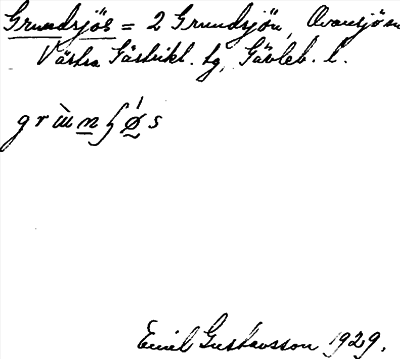 Grundsjös = 2 Grundsjön, Ovansjö sn
Västra Gästrikl. tg, Gävleb. l.
Emil Gustavsson 1929.